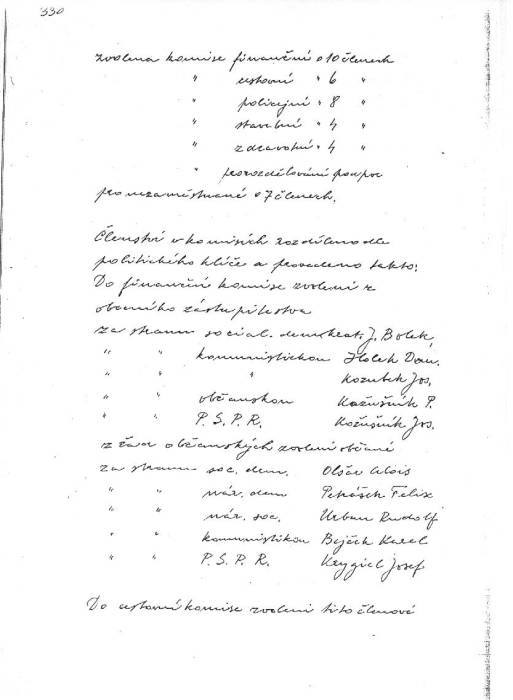 330
zvolena komise finanční o 10 členech
" cestovní " 6 "
" policejní " 8 "
" stavební " 4 "
" zdravotní " 4 "
" pro rozdělování podpor
pro nezaměstnané o 7 členech.
Členství v komisích rozděleno dle
politického klíče a provedeno takto:
Do finanční komise zvoleni z
obecního zástupitelstva
za stranu social. demokrat. J. Bolek,
" " komunistickou Holek Dom.
" " " Kozubek Jos.
" " občanskou Kožušník P.
" " P. S. P. R. Kožušník Jos.
z řad občanských zvoleni občané
za stranu soc. dem. Olšar Alois
" " nár. dem Petrášek Felix
" " nár. soc. Urban Rudolf
" " komunistickou Bejček Karel
" " P. S. P. R. Krygiel Josef
Do cestovní komise zvoleni tito členové